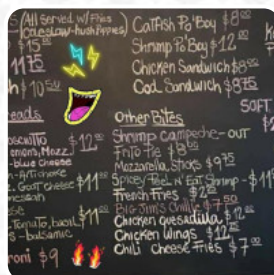 (All served w/ Fries
Coleslaw-hushPuppies)
$15
11
h $10 50
eads
$12
emons, Mozz.
-blue cheese
n-Artichoke
, Goat cheese
$11
Tomato, basil,
$11
s-balsamic
roni $9
Catfish Po'Boy $8
Shrimp Po Boy $12
Chicken Sandwich $8
Cod. Sandwich $8
Other Bites
Shrimp campeche-OUT
Frito Pie $8
Mozzarella Sticks $9
Spicey Peel N' Eat Shrimp - $11
French Fries $2
Big Jim's Chille $7
Chicken quesadilla $12
Chicken Wings $12
Chili Cheese Fries $7
SOFT